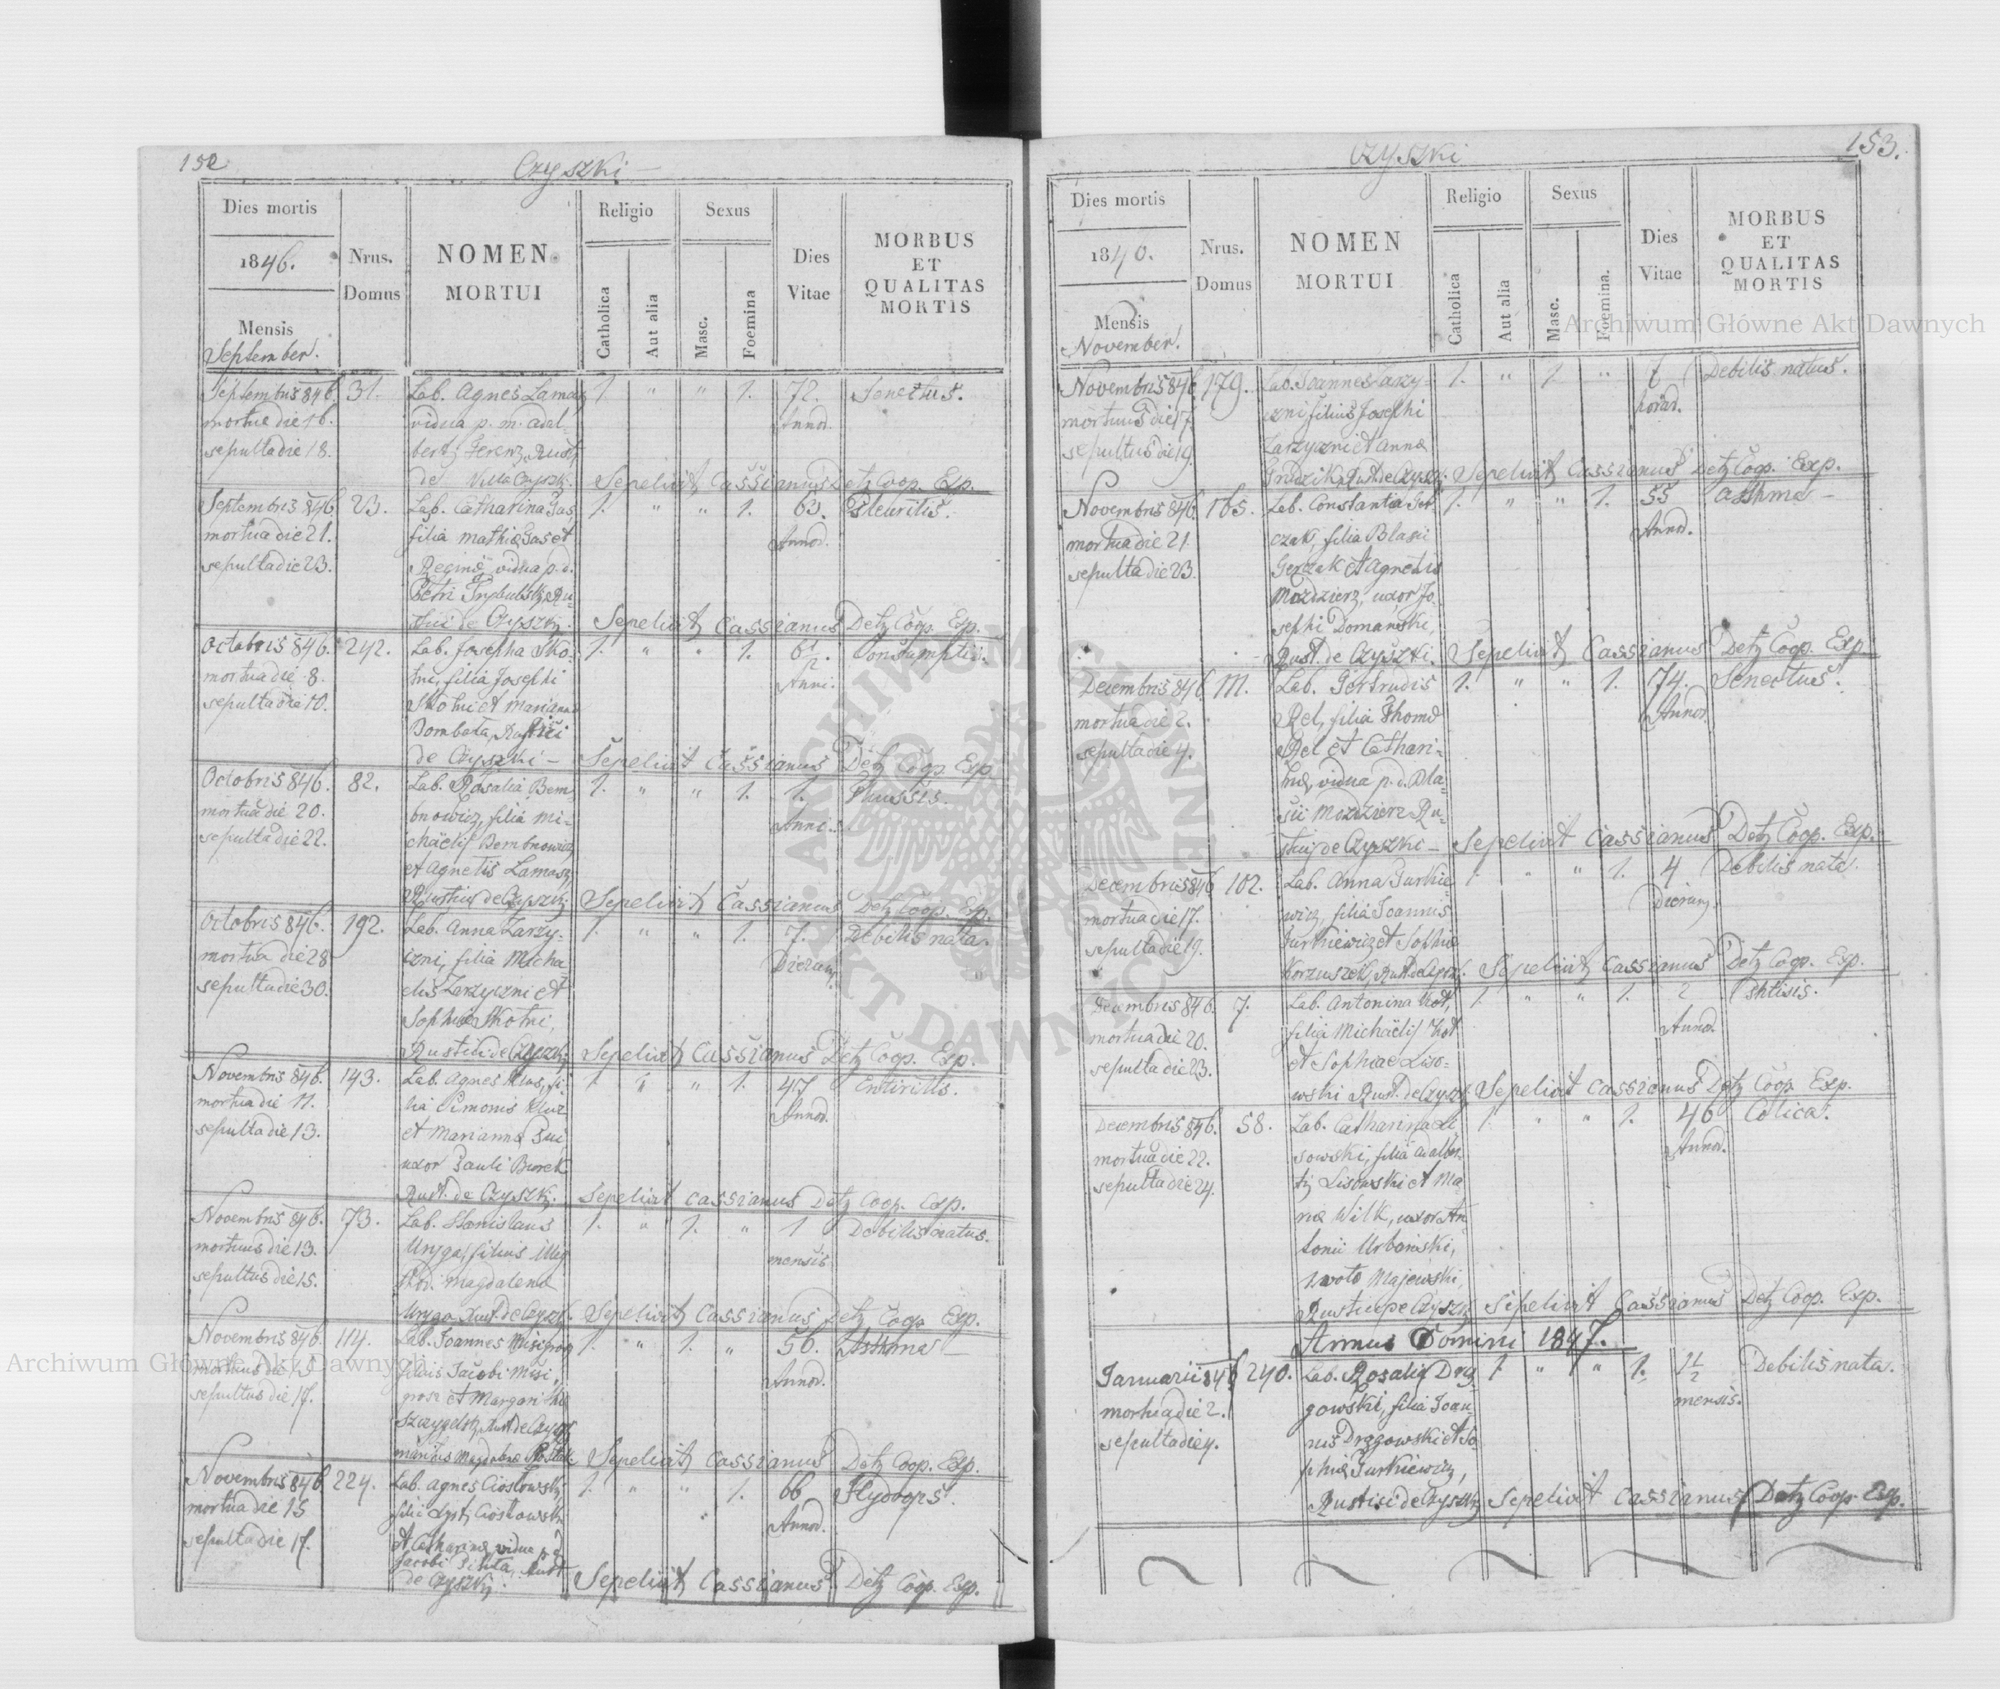 152
Czyszki
Dies mortis
1846.
Mensis
September.
Nrus.
Domus
NOMEN
MORTUI
Religio
Catholica
Aut alia
Sexus
Masc.
Foemina
Dies
Vitae
MORBUS
ET
QUALITAS
MORTIS
Septembris 846. 31. Lab. Agnes Lamasz 1. " " 1. 72. Senectus.
mortua die 16. vidua p. m. Adal- Annor.
sepulta die 18. bertj Ferenz, Rust.
de Villa Czyszki. Sepelivit Cassianus Detz Coop. Exp.
Septembris 846. 23. Lab. Catharina Gas 1. " " 1. 63. Pleuritis.
mortua die 21. filia Mathiae Gas et Annor.
sepulta die 23. Reginae, vidua p. d.
Petri Trybulski, Ru-
stici de Czyszki. Sepelivit Cassianus Detz Coop. Exp.
Octobris 846. 242. Lab. Josepha Sko- 1. " " 1. Consumptio.
mortua die 8. tni, filia Josephi Anni.
sepulta die 10. Skotni et Marianna
Bombata, Rustici
de Czyszki – Sepelivit Cassianus Detz Coop. Exp.
Octobris 846. 82. Lab. Rosalia Bem- 1. " " 1. 1. Thussis.
mortua die 20. bnowicz, filia Mi- Anni.
sepulta die 22. chäelis Bembnowicz
et Agnetis Lamasz,
Rustici de Czyszki. Sepelivit Cassianus Detz Coop. Exp.
Octobris 846. 192. Lab. Anna Zarzy- 1. " " 1. 7. Debilis nata.
mortua die 28 czni, filia Micha- Dierum.
sepulta die 30. elis Zarzyczni et
Sophiae Skotni,
Rustici de Czyszki. Sepelivit Cassianus Detz Coop. Exp.
Novembris 846. 143. Lab. Agnes Klus, fi- 1. " " 1. 47 Entiritis.
mortua die 11. lia Simonis Klus Annor.
sepulta die 13. et Marianna
uxor Pauli Burek
Rust. de Czyszki. Sepelivit Cassianus Detz Coop. Exp.
Novembris 846. 73. Lab. Stanislaus 1. " 1. " 1 Debilis natus.
mortuus die 13. Uryga, filius Illeg mensis
sepultus die 15. Magdalena
Uryga Rust. de Czyszki. Sepelivit Cassianus Detz Coop. Exp.
Novembris 846. 114. Lab. Joannes Misigrosz 1. " 1. " 56. Asthma –
mortuus die 15 filius Jacobi Misi- Annor.
sepultus die 17. grosz et Margari
Rust. de Czyszki
maritus Magdalena Sepelivit Cassianus Detz Coop. Exp.
Novembris 846 224. Lab. Agnes Ciostowski 1. " " 1. 66 Hydrops.
mortua die 15 filia Ciostowski Annor.
sepulta die 17. et Catharina vidua p. d.
Jacobi Pikta, Rust.
de Czyszki. Sepelivit Cassianus Detz Coop. Exp.
153.
Czyszki
Dies mortis
1840.
Mensis
November.
Nrus.
Domus
NOMEN
MORTUI
Religio
Catholica
Aut alia
Sexus
Masc.
Foemina.
Dies
Vitae
MORBUS
ET
QUALITAS
MORTIS
Novembris 846. 179. Lab. Joannes Zarzy- 1. " 1. " Debilis natus.
mortuus die 17. czni filius Josephi horar.
sepultus die 19. Zarzyczni et Anna
Grudzik, Rust. de Czyszki. Sepelivit Cassianus Detz Coop. Exp.
Novembris 846. 165. Lab. Constantia Ger 1. " " 1. 55 Asthma –
mortua die 21 czak, filia Blasii Annor.
sepulta die 23. Gerczak et Agnetis
Mozdzierz, uxor Jo-
sephi Domański,
Rust. de Czyszki. Sepelivit Cassianus Detz Coop. Exp.
Decembris 846. 111. Lab. Gertrudis 1. " " 1. 74. Senectus.
mortua die 2. Rel, filia Thomae Annor.
sepulta die 4. Rel et Cathari-
nae, vidua p. d. Bla-
sii Mozdzierz Ru-
stici de Czyszki – Sepelivit Cassianus Detz Coop. Exp.
Decembris 846 102. Lab. Anna Turkie 1. " " 1. 4 Debilis nata.
mortua die 17. wicz, filia Joannis Dierum.
sepulta die 19. Turkiewicz et Sophiae
Korzuszek, Rust. de Czyszki. Sepelivit Cassianus Detz Coop. Exp.
Decembris 846. 7. Lab. Antonina Kot, 1. " " 1. 2 Phtisis.
mortua die 20. filia Michäelis Kot Annor.
sepulta die 23. et Sophiae Liso-
wski Rust. de Czyszki. Sepelivit Cassianus Detz Coop. Exp.
Decembris 846. 58. Lab. Catharina Li 1. " " 1. 46 Colica.
mortua die 22. sowski, filia Adalber- Annor.
sepulta die 24. ti Lisowski et Ma
nna Wilk, uxor An
tonii Urbański,
1 voto Majewski,
Rustici de Czyszki Sepelivit Cassianus Detz Coop. Exp.
Annus Domini 1847.
Januarii 846 240. Lab. Rosalia Drzą 1. " " 1. 1 1/2 Debilis nata.
mortua die 2. gowski, filia Joan- mensis.
sepulta die 4. nis Drzągowski et So
phiae Turkiewicz,
Rustici de Czyszki Sepelivit Cassianus Detz Coop. Exp.
Archiwum Główne Akt Dawnych
Archiwum Główne Akt Dawnych
ARCHIWUM GŁÓWNE AKT DAWNYCH